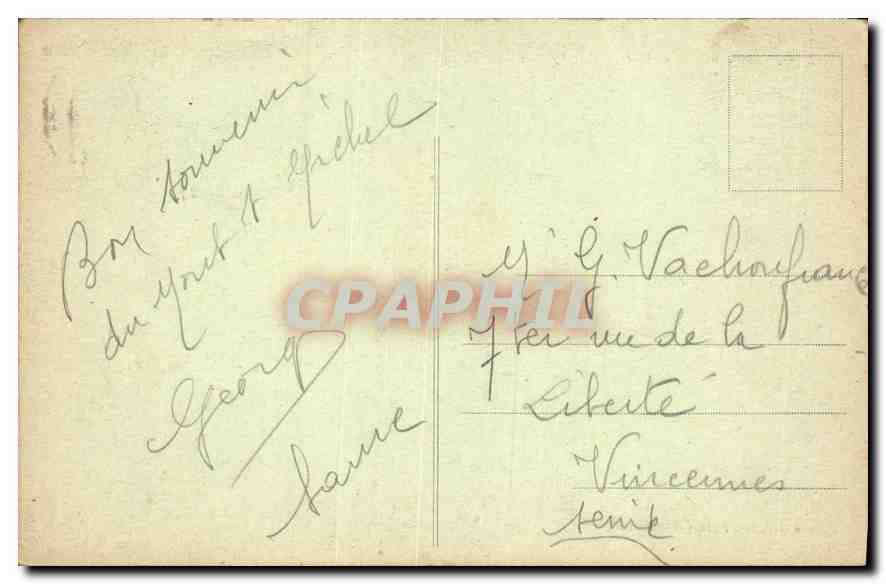 Bon souvenir
du Mont St Michel
Georg
Mr G. Vachon
7 ter rue de la
Liberté
Vincennes
Seine
CPAPHIL